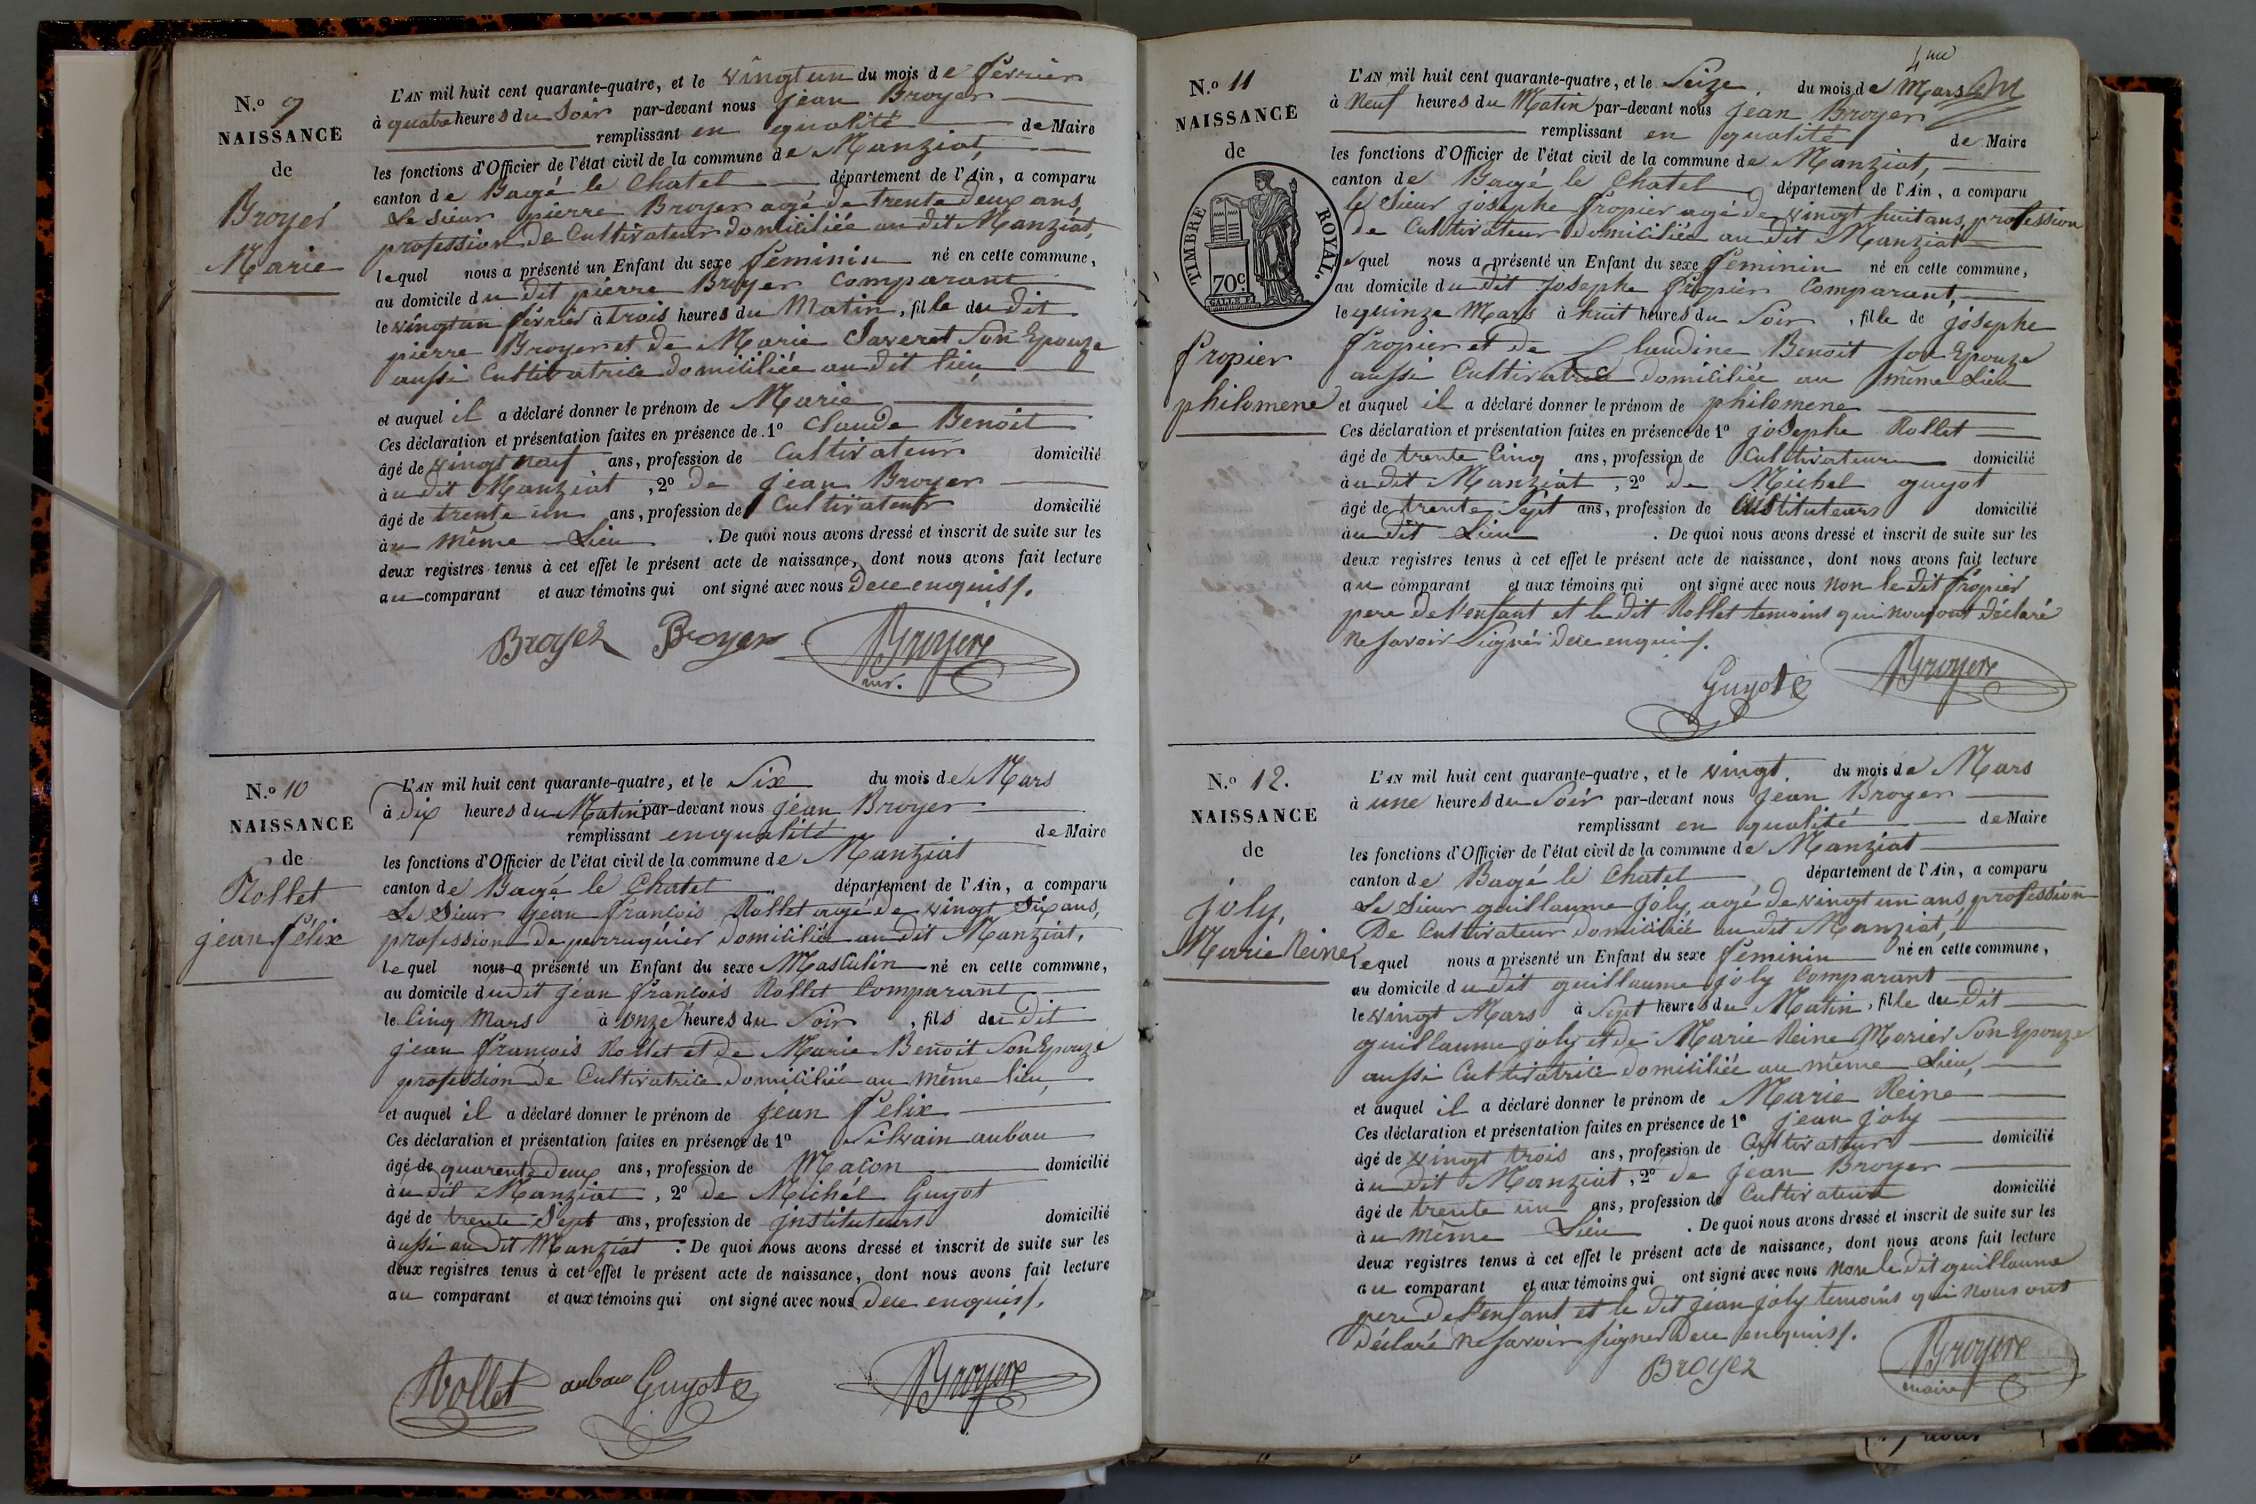 N.o 9
NAISSANCE
de
Broyer
Marie
L'AN mil huit cent quarante-quatre, et le vingt un du mois de février
à quatre heures du Soir par-devant nous jean Broyer
remplissant en qualité de Maire
les fonctions d'Officier de l'état civil de la commune de Manziat,
canton de Bagé le Chatel département de l'Ain, a comparu
Le sieur pierre Broyer agé de trente deux ans,
profession de Cultivateur domiciliée au dit Manziat,
lequel nous a présenté un Enfant du sexe féminin né en cette commune,
au domicile du dit pierre Broyer Comparant
le vingt un février à trois heures du Matin, fille du dit
pierre Broyer et de Marie Saveret Son Epouze
aussi Cultivatrice domiciliée au dit lieu
et auquel il a déclaré donner le prénom de Marie
Ces déclaration et présentation faites en présence de 1o Claude Benoit
âgé de vingt neuf ans, profession de Cultivateur domicilié
à u dit Manziat, 2o de jean Broyer
âgé de trente un ans, profession de Cultivateur domicilié
à u même Lieu. De quoi nous avons dressé et inscrit de suite sur les
deux registres tenus à cet effet le présent acte de naissance, dont nous avons fait lecture
au comparant et aux témoins qui ont signé avec nous Dece enquis.
Broyer Broyer Broyere
mr.
N.o 10
NAISSANCE
de
Rollet
jean félix
L'AN mil huit cent quarante-quatre, et le Six du mois de Mars
à dix heures du Matin par-devant nous jean Broyer
remplissant en qualité de Maire
les fonctions d'Officier de l'état civil de la commune de Manziat
canton de Bagé le Chatel département de l'Ain, a comparu
Le Sieur jean françois Rollet agé de vingt Six ans,
profession de perruquier domiciliée au dit Manziat,
lequel nous a présenté un Enfant du sexe Masculin né en cette commune,
au domicile dudit jean françois Rollet Comparant
le Cinq Mars à onze heures du Soir, fils du dit
jean françois Rollet et de Marie Benoit Son Epouze
profession de Cultivatrice domiciliée au même lieu,
et auquel il a déclaré donner le prénom de jean félix
Ces déclaration et présentation faites en présence de 1o Silvain aubau
âgé de quarente deux ans, profession de Maçon domicilié
à u dit Manziat, 2o de Michél Guyot
âgé de trente Sept ans, profession de jnstituteurs domicilié
à ussi au dit Manziat. De quoi nous avons dressé et inscrit de suite sur les
deux registres tenus à cet effet le présent acte de naissance, dont nous avons fait lecture
au comparant et aux témoins qui ont signé avec nous Dece enquis.
Rollet aubau Guyot Broyere
4me
N.o 11
NAISSANCE
de
TIMBRE ROYAL.
70c.
fropier
philomene
L'AN mil huit cent quarante-quatre, et le Seize du mois de Mars
à Neuf heures du Matin par-devant nous jean Broyer
remplissant en qualité de Maire
les fonctions d'Officier de l'état civil de la commune de Manziat,
canton de Bagé le Chatel département de l'Ain, a comparu
le Sieur josephe fropier agé de vingt huit ans, profession
de Cultivateur domiciliée au dit Manziat
lequel nous a présenté un Enfant du sexe féminin né en cette commune,
au domicile du dit josephe fropier Comparant,
le quinze Mars à huit heures du Soir, fille de josephe
fropier et de Claudine Benoit son Epouze
aussi Cultivatrice domiciliée au même Lieu
et auquel il a déclaré donner le prénom de philomene
Ces déclaration et présentation faites en présence de 1o josephe Rollet
âgé de trente Cinq ans, profession de Cultivateur domicilié
à u dit Manziat, 2o de Michel guyot
âgé de trente Sept ans, profession de instituteurs domicilié
à u dit Lieu. De quoi nous avons dressé et inscrit de suite sur les
deux registres tenus à cet effet le présent acte de naissance, dont nous avons fait lecture
au comparant et aux témoins qui ont signé avec nous non le dit fropier
pere de l'enfant et le dit Rollet temoins qui nous ont déclaré
ne savoir Signér dece enquis.
Guyot Broyere
N.o 12.
NAISSANCE
de
joly,
Marie Reine
L'AN mil huit cent quarante-quatre, et le vingt. du mois de Mars
à une heures du Soir par-devant nous jean Broyer
remplissant en qualité de Maire
les fonctions d'Officier de l'état civil de la commune de Manziat
canton de Bagé le Chatel département de l'Ain, a comparu
Le Sieur guillaume joly, agé de vingt un ans, profession
De Cultivateur domiciliée au dit Manziat,
lequel nous a présenté un Enfant du sexe féminin né en cette commune,
au domicile du dit guillaume joly Comparant
le vingt Mars à Sept heures du Matin, fille du dit
guillaume joly et de Marie Reine Morier Son Epouze
aussi Cultivatrice domiciliée au même Lieu,
et auquel il a déclaré donner le prénom de Marie Reine
Ces déclaration et présentation faites en présence de 1o jean joly
âgé de vingt trois ans, profession de Cultivateur domicilié
à u dit Manziat, 2o de jean Broyer
âgé de trente un ans, profession de Cultivateur domicilié
à u même Lieu. De quoi nous avons dressé et inscrit de suite sur les
deux registres tenus à cet effet le présent acte de naissance, dont nous avons fait lecture
au comparant et aux témoins qui ont signé avec nous non le dit guillaume
pere de l'enfant et le dit jean joly temoins qui nous ont
déclaré ne savoir signer Dece enquis.
Broyer Broyere
maire